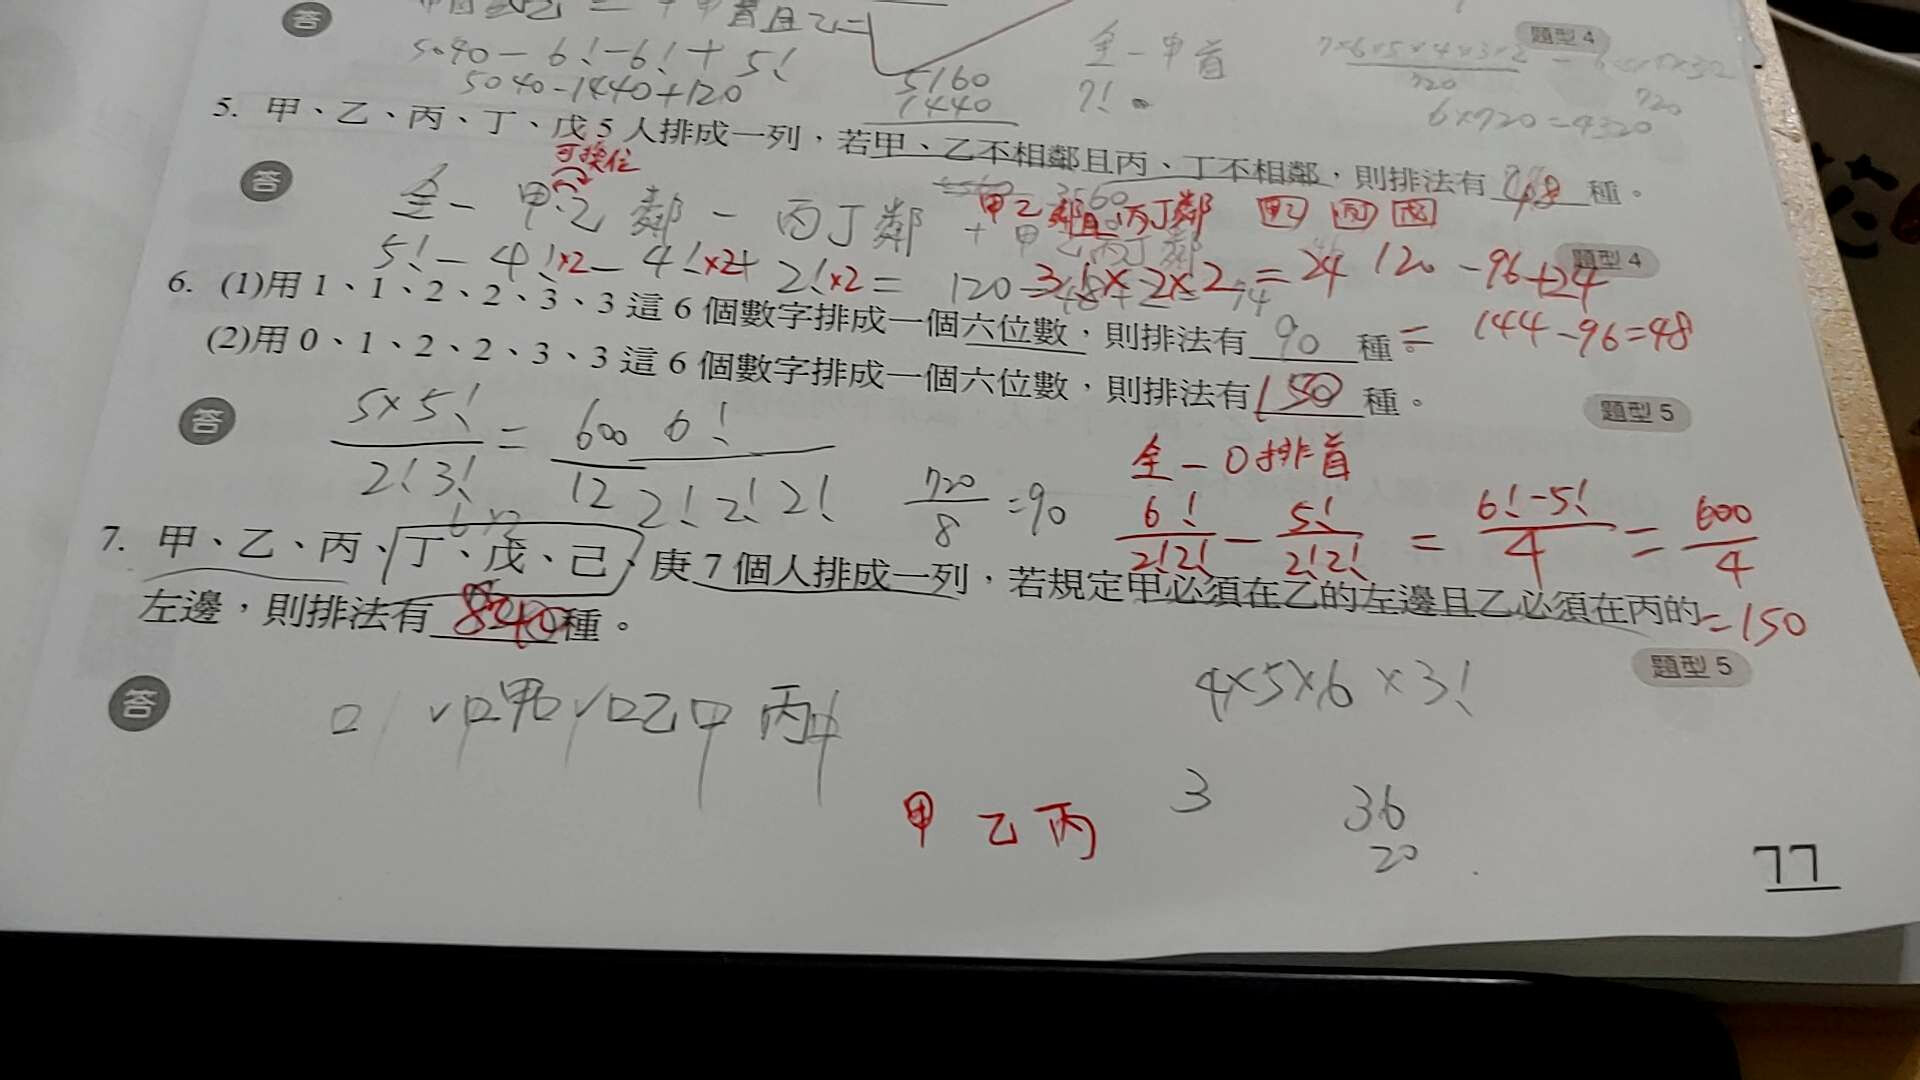 答
題型 4
5040 - 6! - 6! + 5!
5040 - 1440 + 120
5160
1440
全 - 甲首
7!
6×720 = 4320
720
5. 甲、乙、丙、丁、戊 5 人排成一列，若甲、乙不相鄰且丙、丁不相鄰，則排法有 48 種。
可換位
答
全 - 甲、乙 鄰 - 丙丁鄰 +
甲乙鄰且丙丁鄰
題型 4
5! - 4!×2 - 4!×2+ 2!×2 = 120
×2×2 = 24
120 - 96 + 24
= 144 - 96 = 48
6. (1)用 1、1、2、2、3、3 這 6 個數字排成一個六位數，則排法有 90 種。
(2)用 0、1、2、2、3、3 這 6 個數字排成一個六位數，則排法有 150 種。
題型 5
答
5×5!/2!3! = 600/12
6!/2!2!2!
720/8 = 90
全 - 0排首
6!/2!2! - 5!/2!2! = 6!-5!/4 = 600/4
= 150
7. 甲、乙、丙、丁、戊、己、庚 7 個人排成一列，若規定甲必須在乙的左邊且乙必須在丙的
左邊，則排法有 840 種。
題型 5
答
4×5×6×3!
甲 乙 丙
3
36
20
77